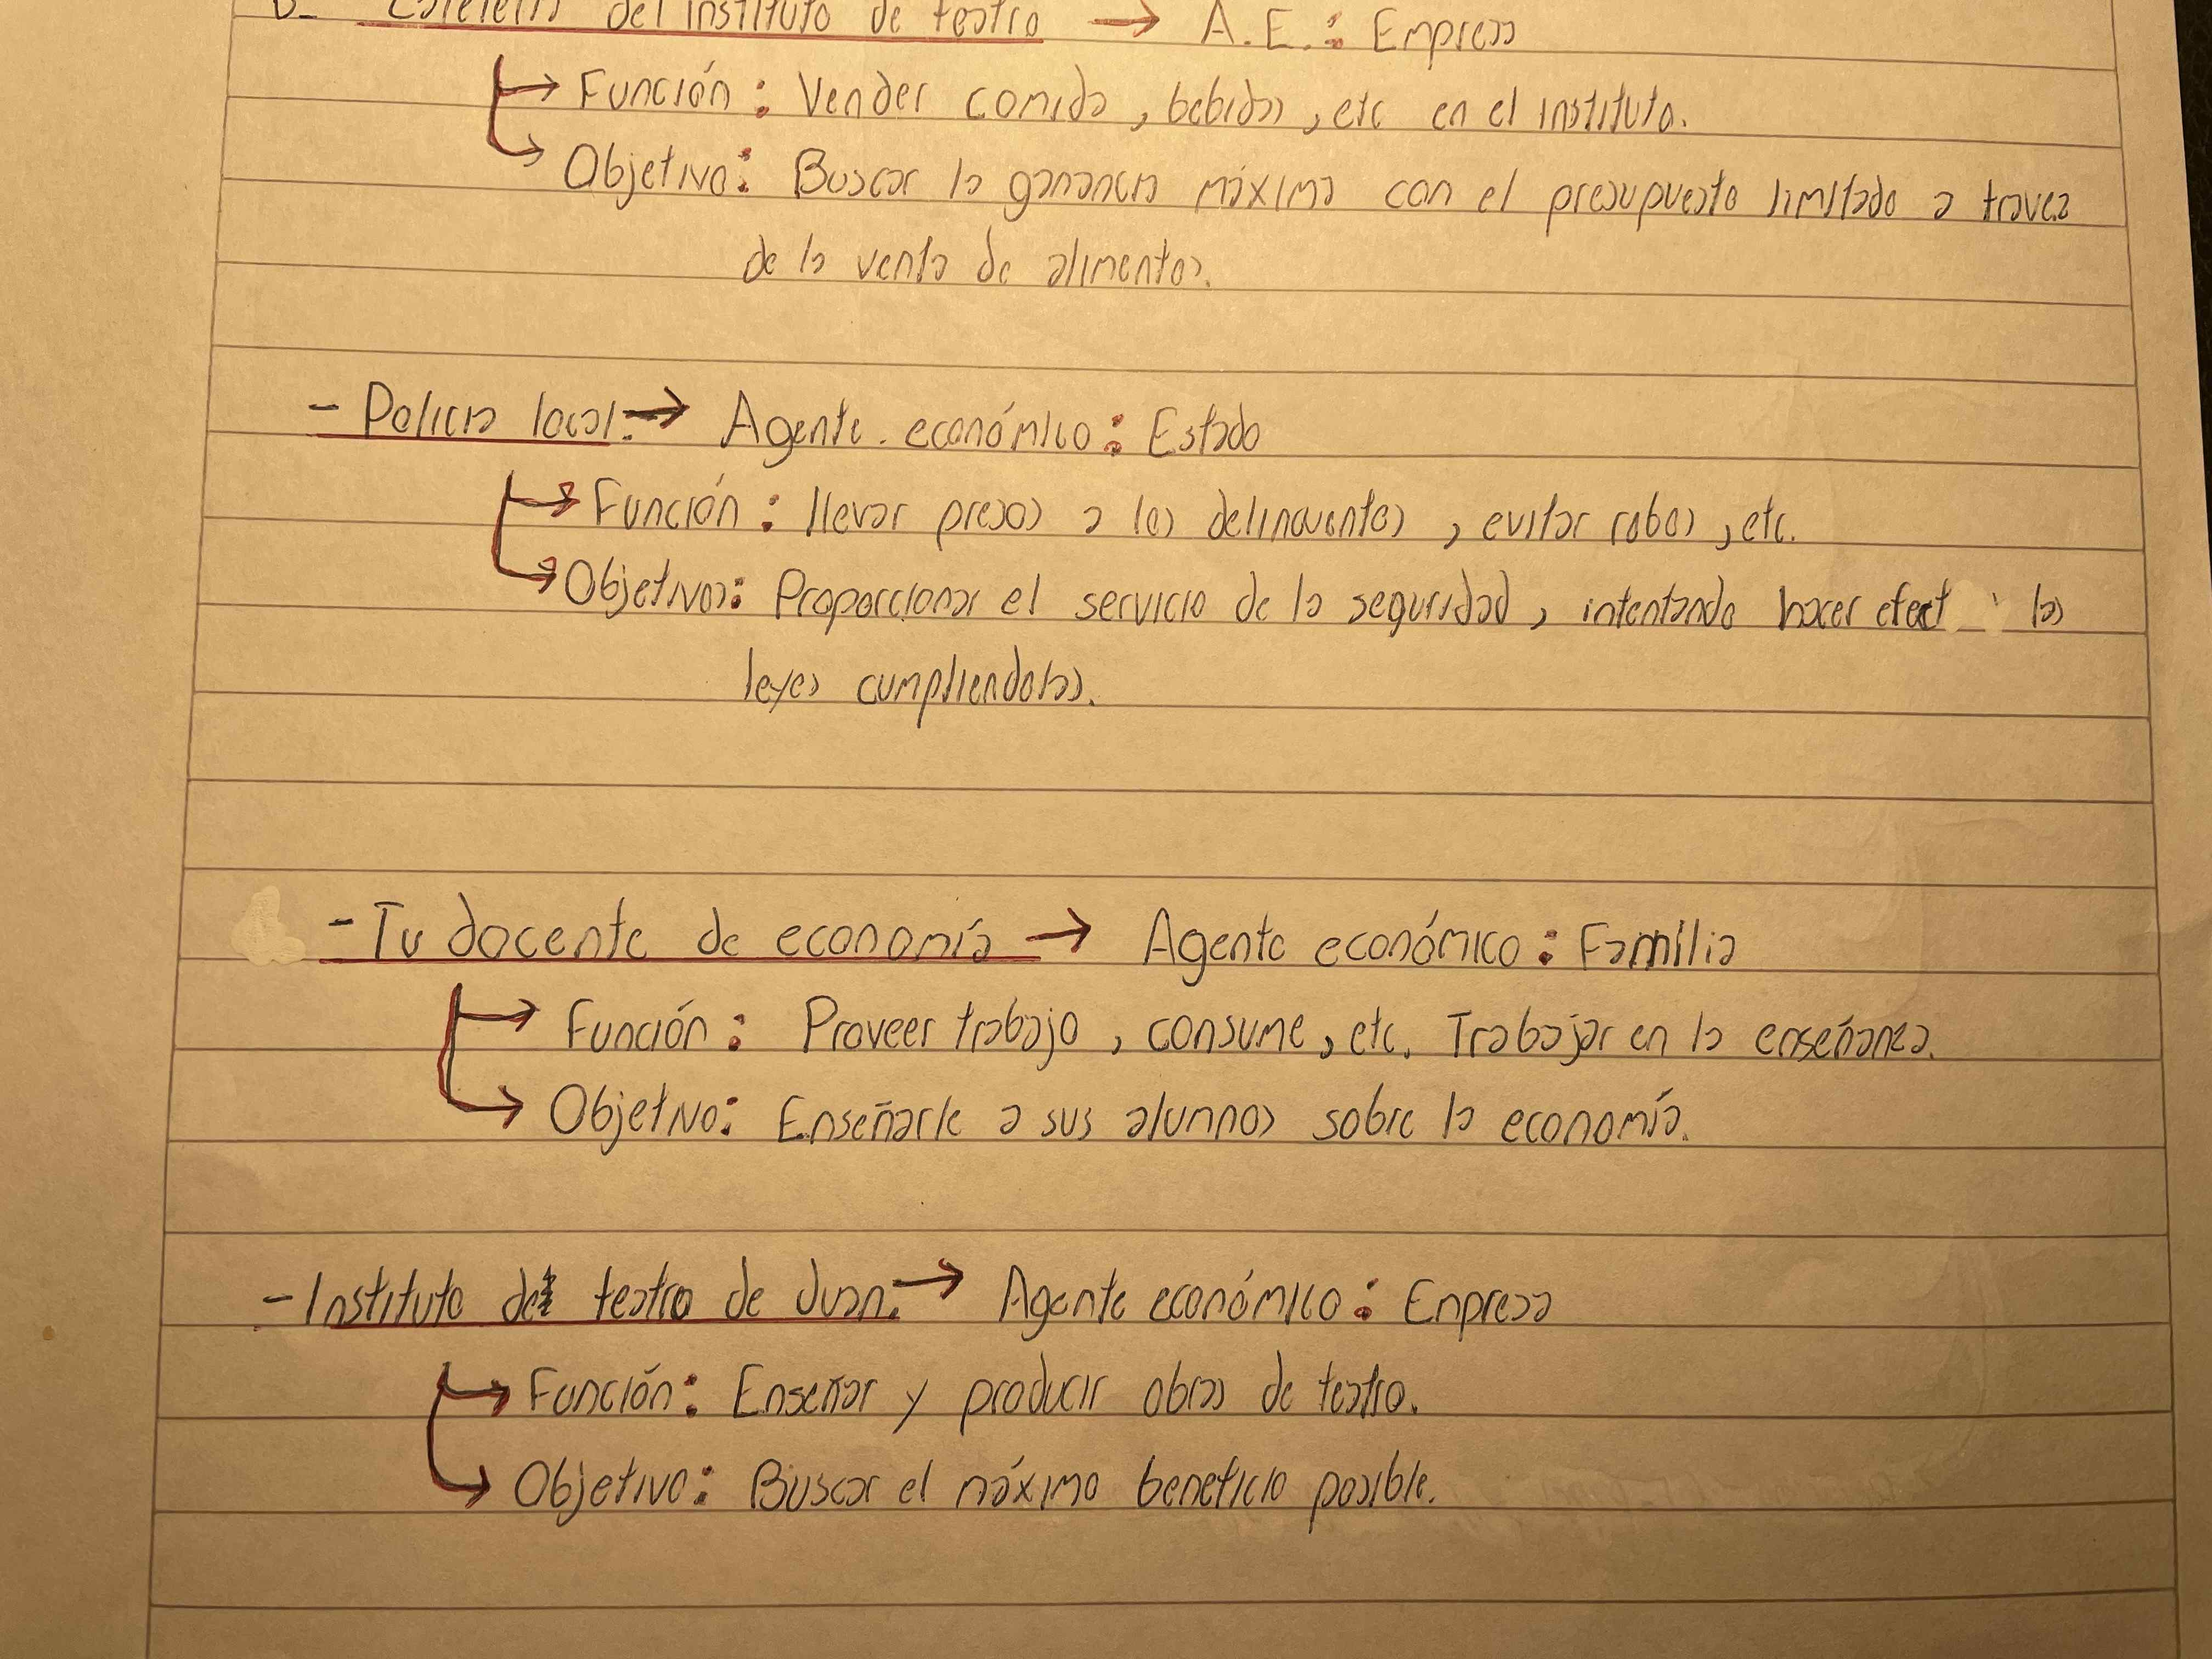 del instituto de teatro → A.E.: Empresa
Función: Vender comida, bebidas, etc en el instituto.
Objetivo: Buscar la ganancia máxima con el presupuesto limitado a traves
de la venta de alimentos.
- Policia local. → Agente económico: Estado
Función: llevar presos a los delincuentes, evitar robos, etc.
Objetivos: Proporcionar el servicio de la seguridad, intentando hacer las
leyes cumpliendolas.
- Tu docente de economía → Agente económico: Familia
Función: Proveer trabajo, consume, etc. Trabajar en la enseñanza.
Objetivo: Enseñarle a sus alumnos sobre la economía.
- Instituto de teatro de Juan. → Agente económico: Enpresa
Función: Enseñar y producir obras de teatro.
Objetivo: Buscar el máximo beneficio posible.